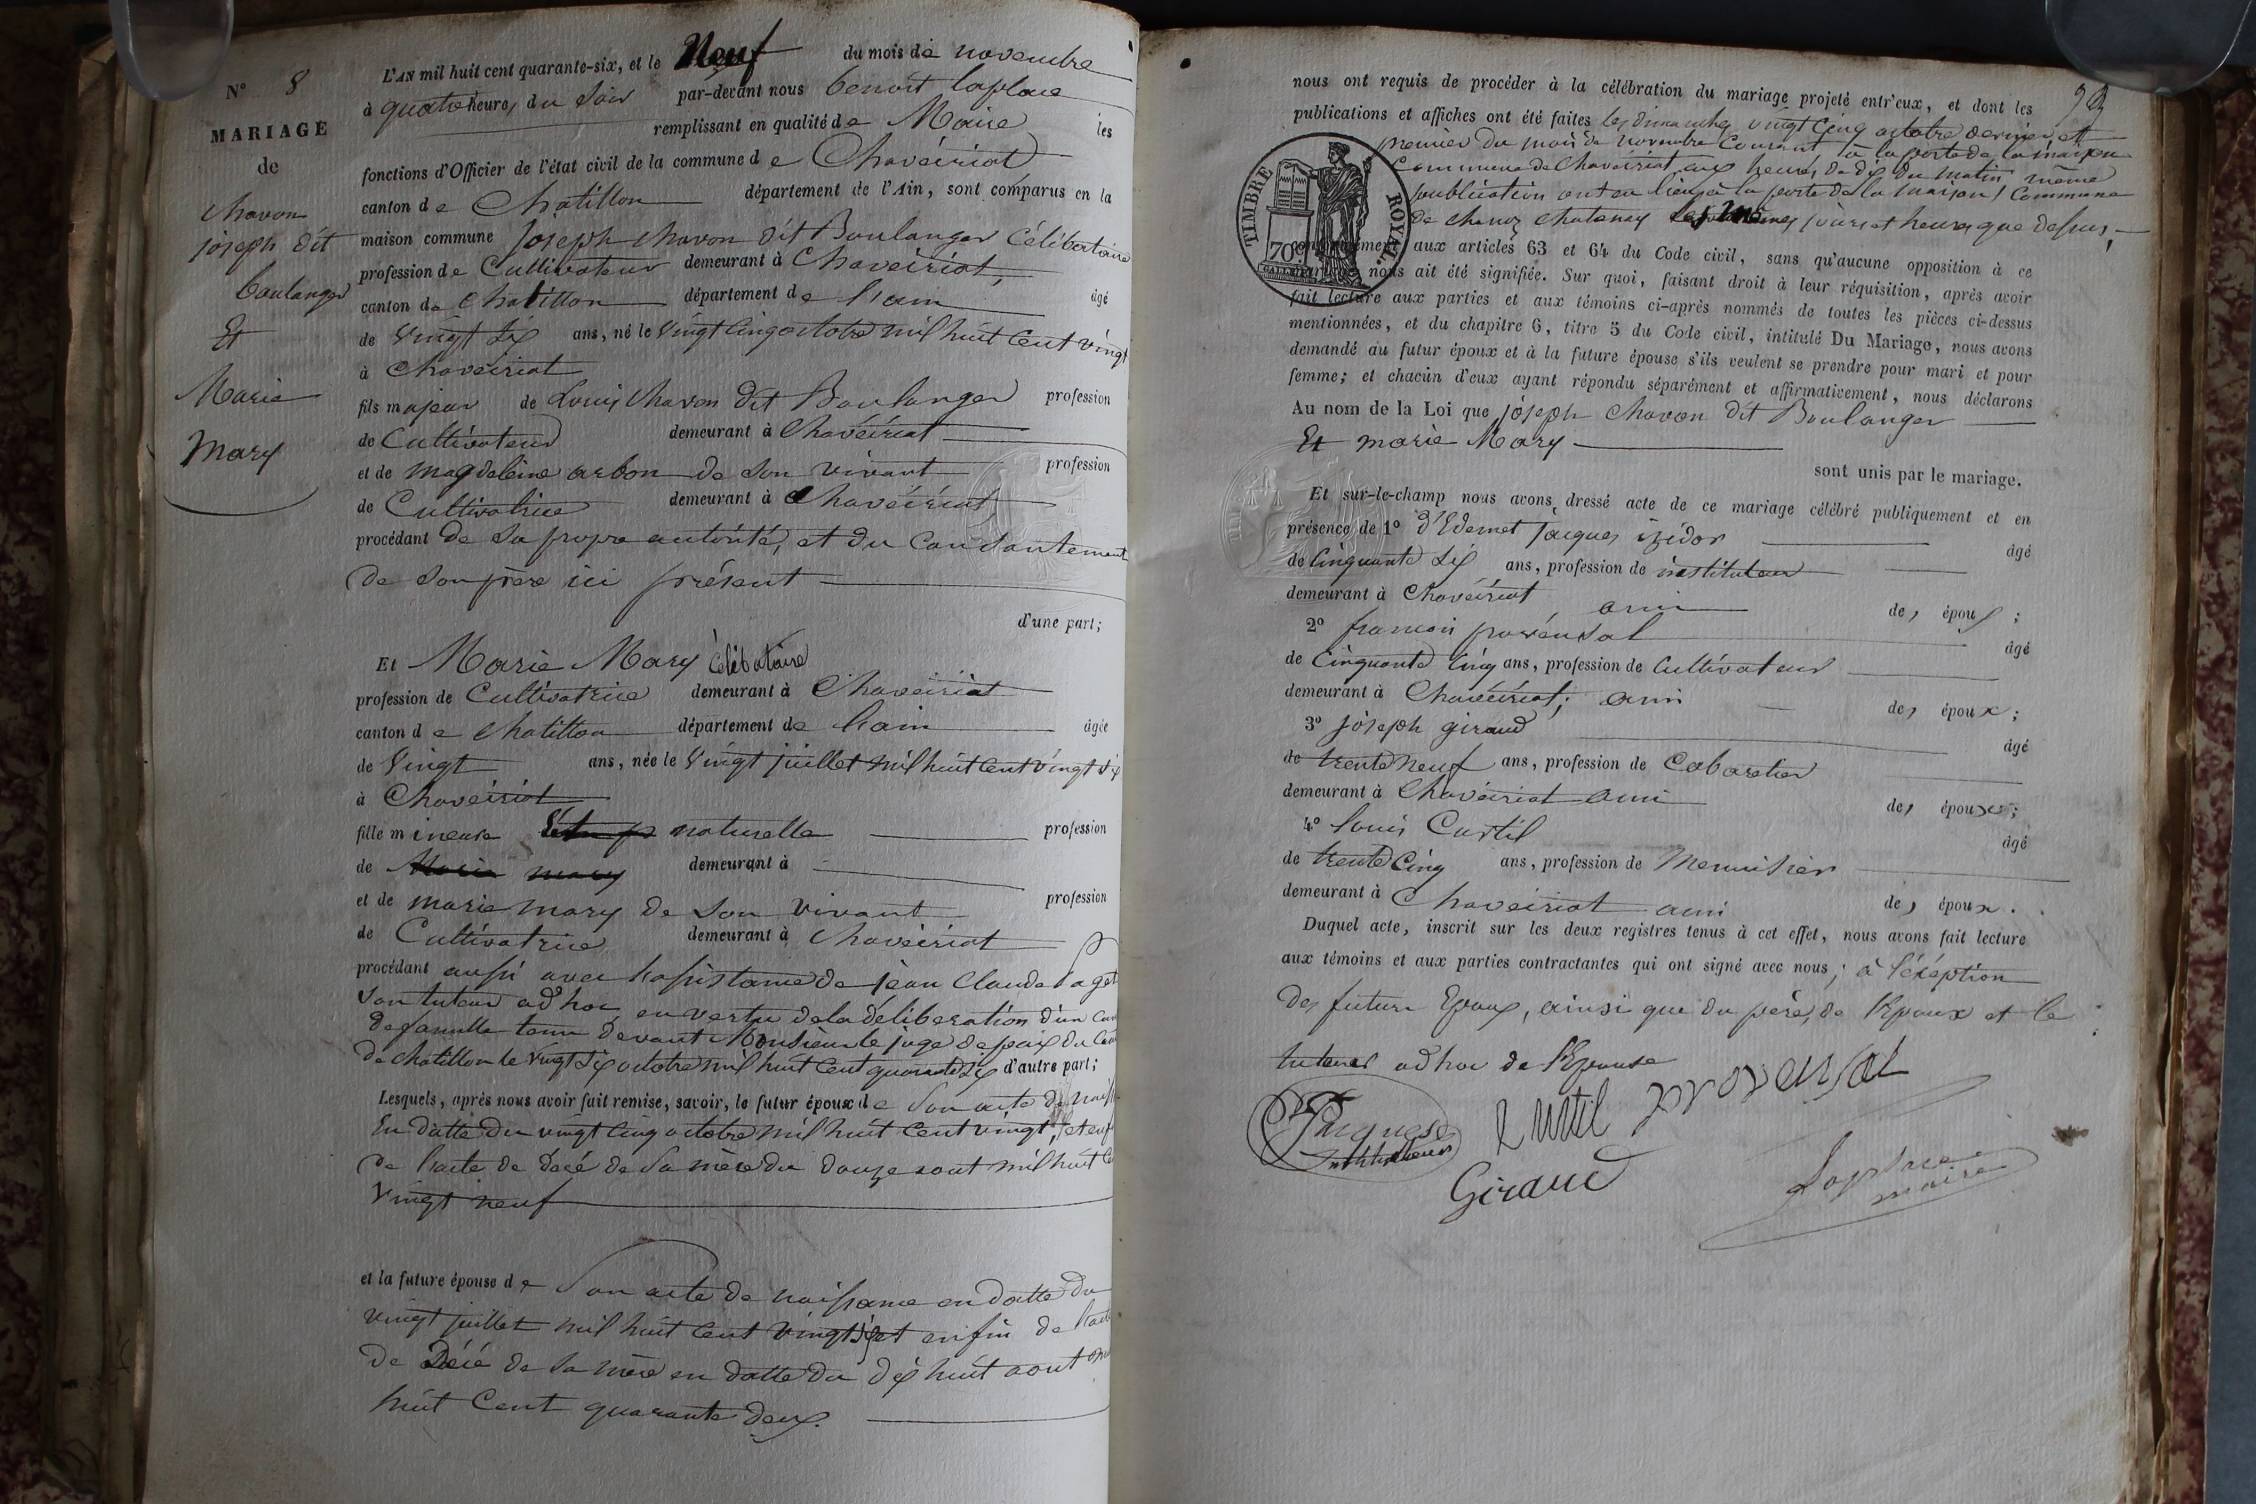 N° 8
MARIAGE
de
Chavon
joseph dit
boulanger
Et
Marie
Mary
L'AN mil huit cent quarante-six, et le Neuf du mois de novembre
à quatre heures du Soir par-devant nous benoit laplace
remplissant en qualité de Maire les
fonctions d'Officier de l'état civil de la commune de Chaveiriat
canton de Chatillon département de l'Ain, sont comparus en la
maison commune joseph chavon dit Boulanger Célibataire
profession de Cultivateur demeurant à Chaveiriat,
canton de Chatillon département de l'ain âgé
de vingt six ans, né le vingt cinq octobre mil huit Cent vingt
à Chaveiriat
fils majeur de Louis Chavon dit Boulanger profession
de Cultivateur demeurant à Chavéiriat
et de magdeleine arbon de son vivant profession
de Cultivatrice demeurant à Chavéiriat
procédant de sa propre autorité, et du Consentement
de son père ici présent
d'une part;
Et Marie Mary Célibataire
profession de Cultivatrice demeurant à Chaveiriat
canton de chatillon département de l'ain âgée
de Vingt ans, née le vingt juillet mil huit cent vingt six
à Chaveiriat
fille mineure naturelle profession
de Marie mary demeurant à
et de marie mary de son vivant profession
de Cultivatrice demeurant à Chavéiriat
procédant aussi avec l'assistance de jean Claude
son tuteur ad hoc, en vertu de la délibération d'un
de famille tenu devant Monsieur le juge de paix du
de chatillon le vingt six octobre mil huit Cent quarante six d'autre part;
Lesquels, après nous avoir fait remise, savoir, le futur époux de son acte de
En datte du vingt cinq octobre mil huit Cent vingt,
de l'acte de décé de sa mère du douze aout mil huit
vingt neuf
et la future épouse de son acte de naissance en datte du
vingt juillet mil huit Cent vingt six et enfin de
de décé de sa mère en datte du dix huit aout
huit Cent quarante deux.
nous ont requis de procéder à la célébration du mariage projeté entr'eux, et dont les
publications et affiches ont été faites les dimanches vingt Cinq octobre dernier et
premier du mois de novembre Courant à la porte de la maison
Commune de Chaveiriat aux heures de dix du matin même
publication ont eu lieu à la porte de la maison Commune
de chanoz chatenay jours et heures que dessus,
TIMBRE ROYAL.
70
conformément aux articles 63 et 64 du Code civil, sans qu'aucune opposition à ce
mariage nous ait été signifiée. Sur quoi, faisant droit à leur réquisition, après avoir
fait lecture aux parties et aux témoins ci-après nommés de toutes les pièces ci-dessus
mentionnées, et du chapitre 6, titre 5 du Code civil, intitulé Du Mariage, nous avons
demandé au futur époux et à la future épouse s'ils veulent se prendre pour mari et pour
femme; et chacun d'eux ayant répondu séparément et affirmativement, nous déclarons
Au nom de la Loi que joseph Chavon dit Boulanger
Et marie Mary
sont unis par le mariage.
Et sur-le-champ nous avons dressé acte de ce mariage célébré publiquement et en
présence de 1° jacques izidor âgé
de Cinquante six ans, profession de instituteur
demeurant à Chavéiriat, ami des époux;
2° françois provensal âgé
de Cinquante Cinq ans, profession de Cultivateur
demeurant à Chavéiriat, ami des époux;
3° joseph giraud âgé
de trente neuf ans, profession de Cabaretier
demeurant à Chavéiriat ami des époux;
4° Louis Curtil âgé
de trente Cinq ans, profession de Menuisier
demeurant à Chaveiriat ami des époux.
Duquel acte, inscrit sur les deux registres tenus à cet effet, nous avons fait lecture
aux témoins et aux parties contractantes qui ont signé avec nous; à l'éxéption
des futurs Epoux, ainsi que du père de l'Epoux et le
tuteur ad hoc de l'Epouse
instituteur
Curtil provensal
Giraud
Laplace
maire